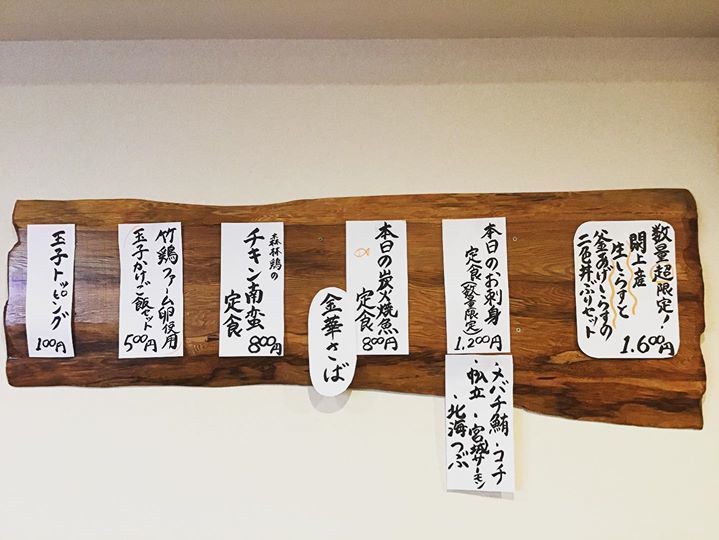 数量超限定!
閖上産
生しらすと
釜あげしらすの
二色丼ぶりセット
1.600円
本日のお刺身
定食(数量限定)
1.200円
・メバチ鮪・コチ
・帆立・宮城サーモン
・北海つぶ
本日の炭火焼魚
定食
800円
金華さば
森林鶏の
チキン南蛮
定食
800円
竹鶏ファーム卵使用
玉子かけご飯セット
500円
玉子トッピング
100円